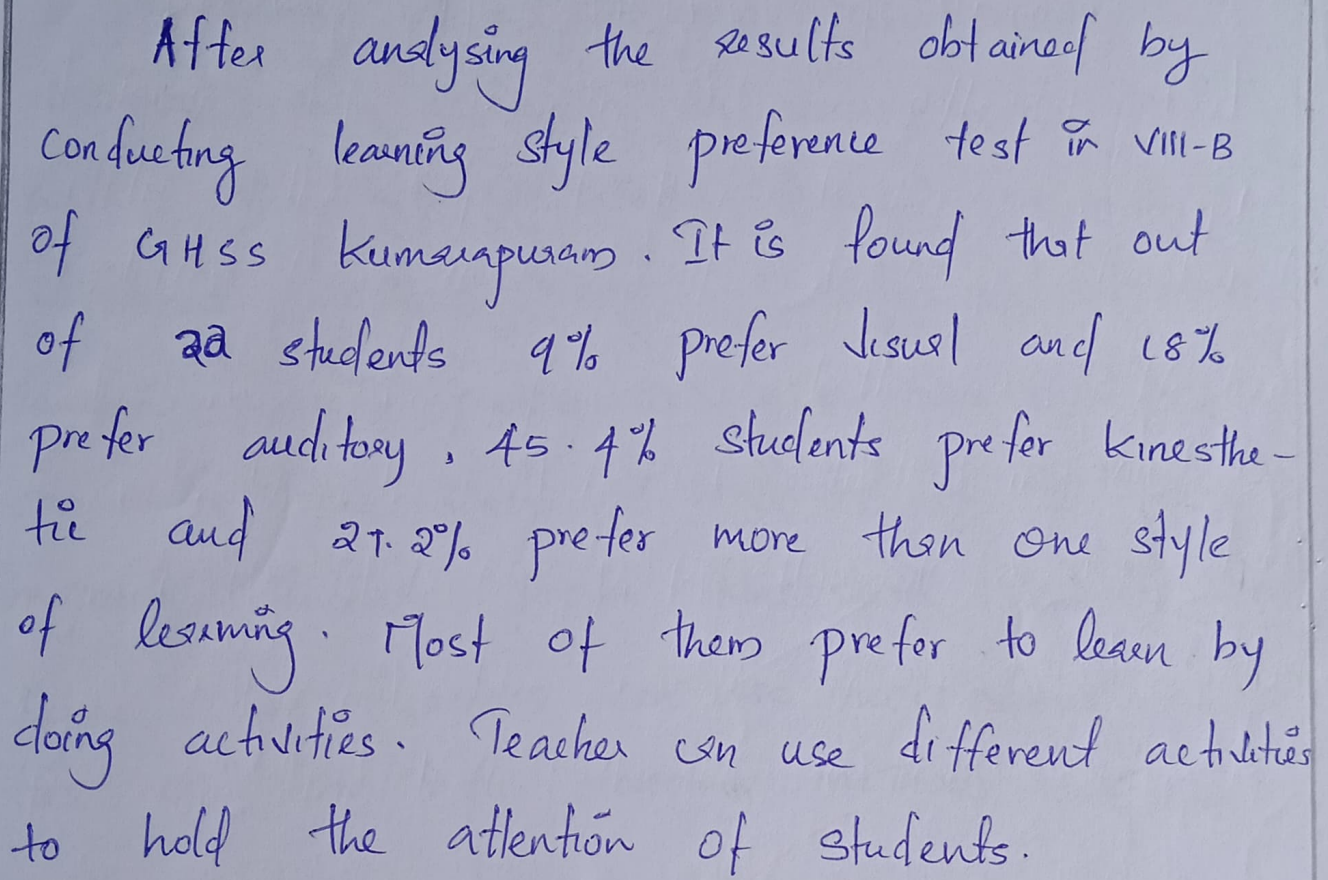 After analysing the results obtained by
conducting learning style preference test in VIII-B
of GHSS Kumarapuram. It is found that out
of 22 students 9% prefer visual and 18%
prefer auditory, 45.4% students prefer kinesthe-
tic and 27.2% prefer more than one style
of learning. Most of them prefer to learn by
doing activities. Teacher can use different activities
to hold the attention of students.